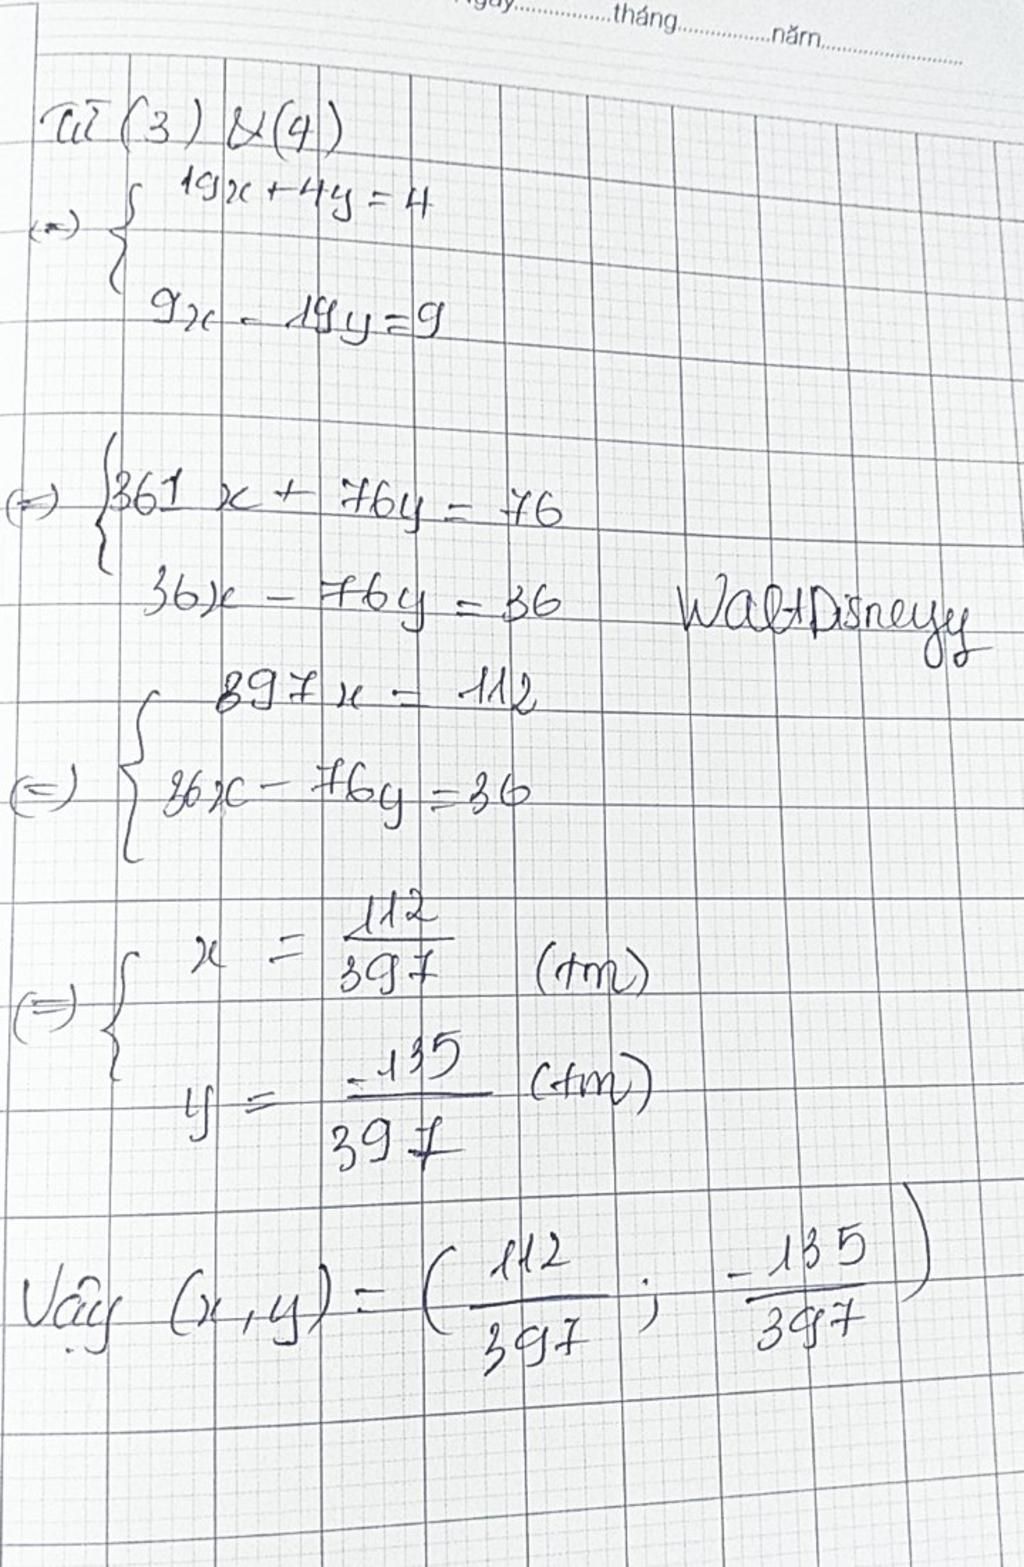 Ngày................tháng................năm........................
Từ (3) & (4)
(=) { 19x + 4y = 4
9x - 19y = 9
(=) { 361x + 76y = 76
36x - 76y = 36
WaltDisneyy
(=) { 397x = 112
36x - 76y = 36
(=) { x = 112/397 (tm)
y = -135/397 (tm)
Vậy (x, y) = (112/397 ; -135/397)